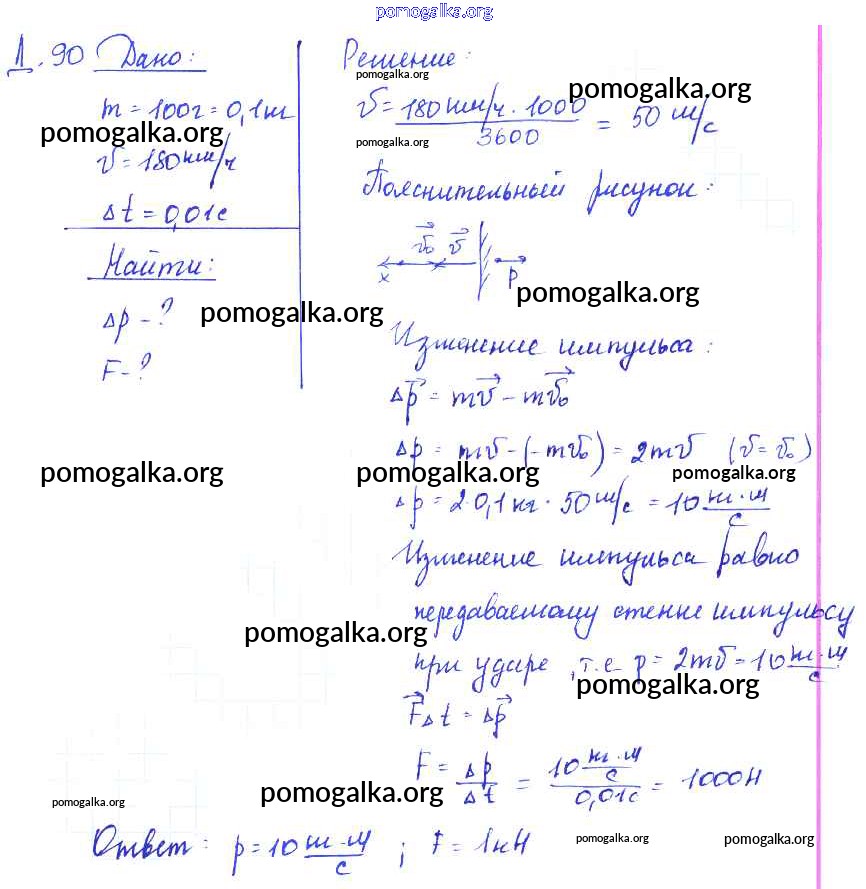 pomogalka.org
1.90 Дано:
m = 100г = 0,1кг
pomogalka.org
v = 180 км/ч
Δt = 0,01с
Найти:
Δp - ?
pomogalka.org
F - ?
Решение:
pomogalka.org
pomogalka.org
v = 180 км/ч · 1000 / 3600 = 50 м/с
pomogalka.org
Пояснительный рисунок:
v⃗₀ v⃗
x p
pomogalka.org
Изменение импульса:
Δp⃗ = mv⃗ - mv⃗₀
Δp = mv - (-mv₀) = 2mv (v = v₀)
pomogalka.org pomogalka.org pomogalka.org
Δp = 2·0,1 кг · 50 м/с = 10 кг·м/с
Изменение импульса равно
передаваемому стенке импульсу
pomogalka.org
при ударе, т.е p = 2mv = 10 кг·м/с
pomogalka.org
F⃗Δt = Δp⃗
F = Δp/Δt = 10 кг·м/с / 0,01с = 1000Н
pomogalka.org pomogalka.org
Ответ: p = 10 кг·м/с ; F = 1кН
pomogalka.org pomogalka.org